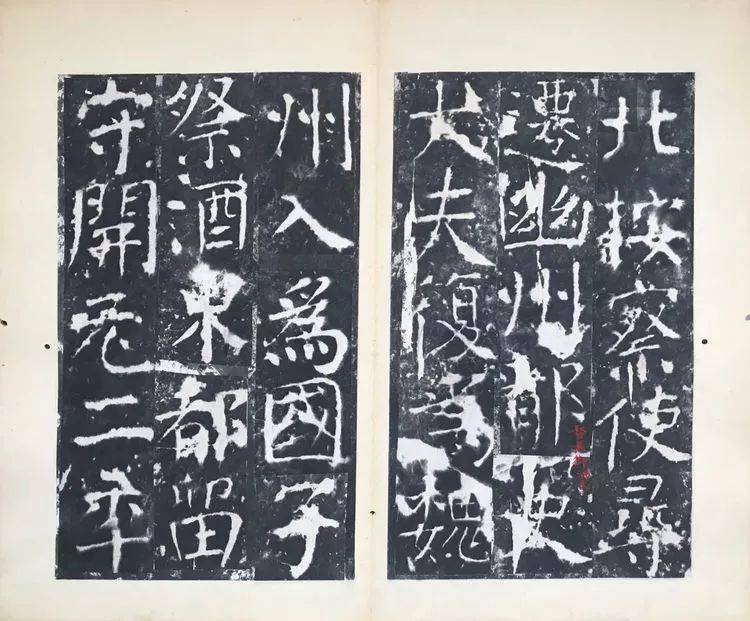 北按察使尋
遷幽州都
大夫復為魏
州入為國子
祭酒東都留
守開元二年